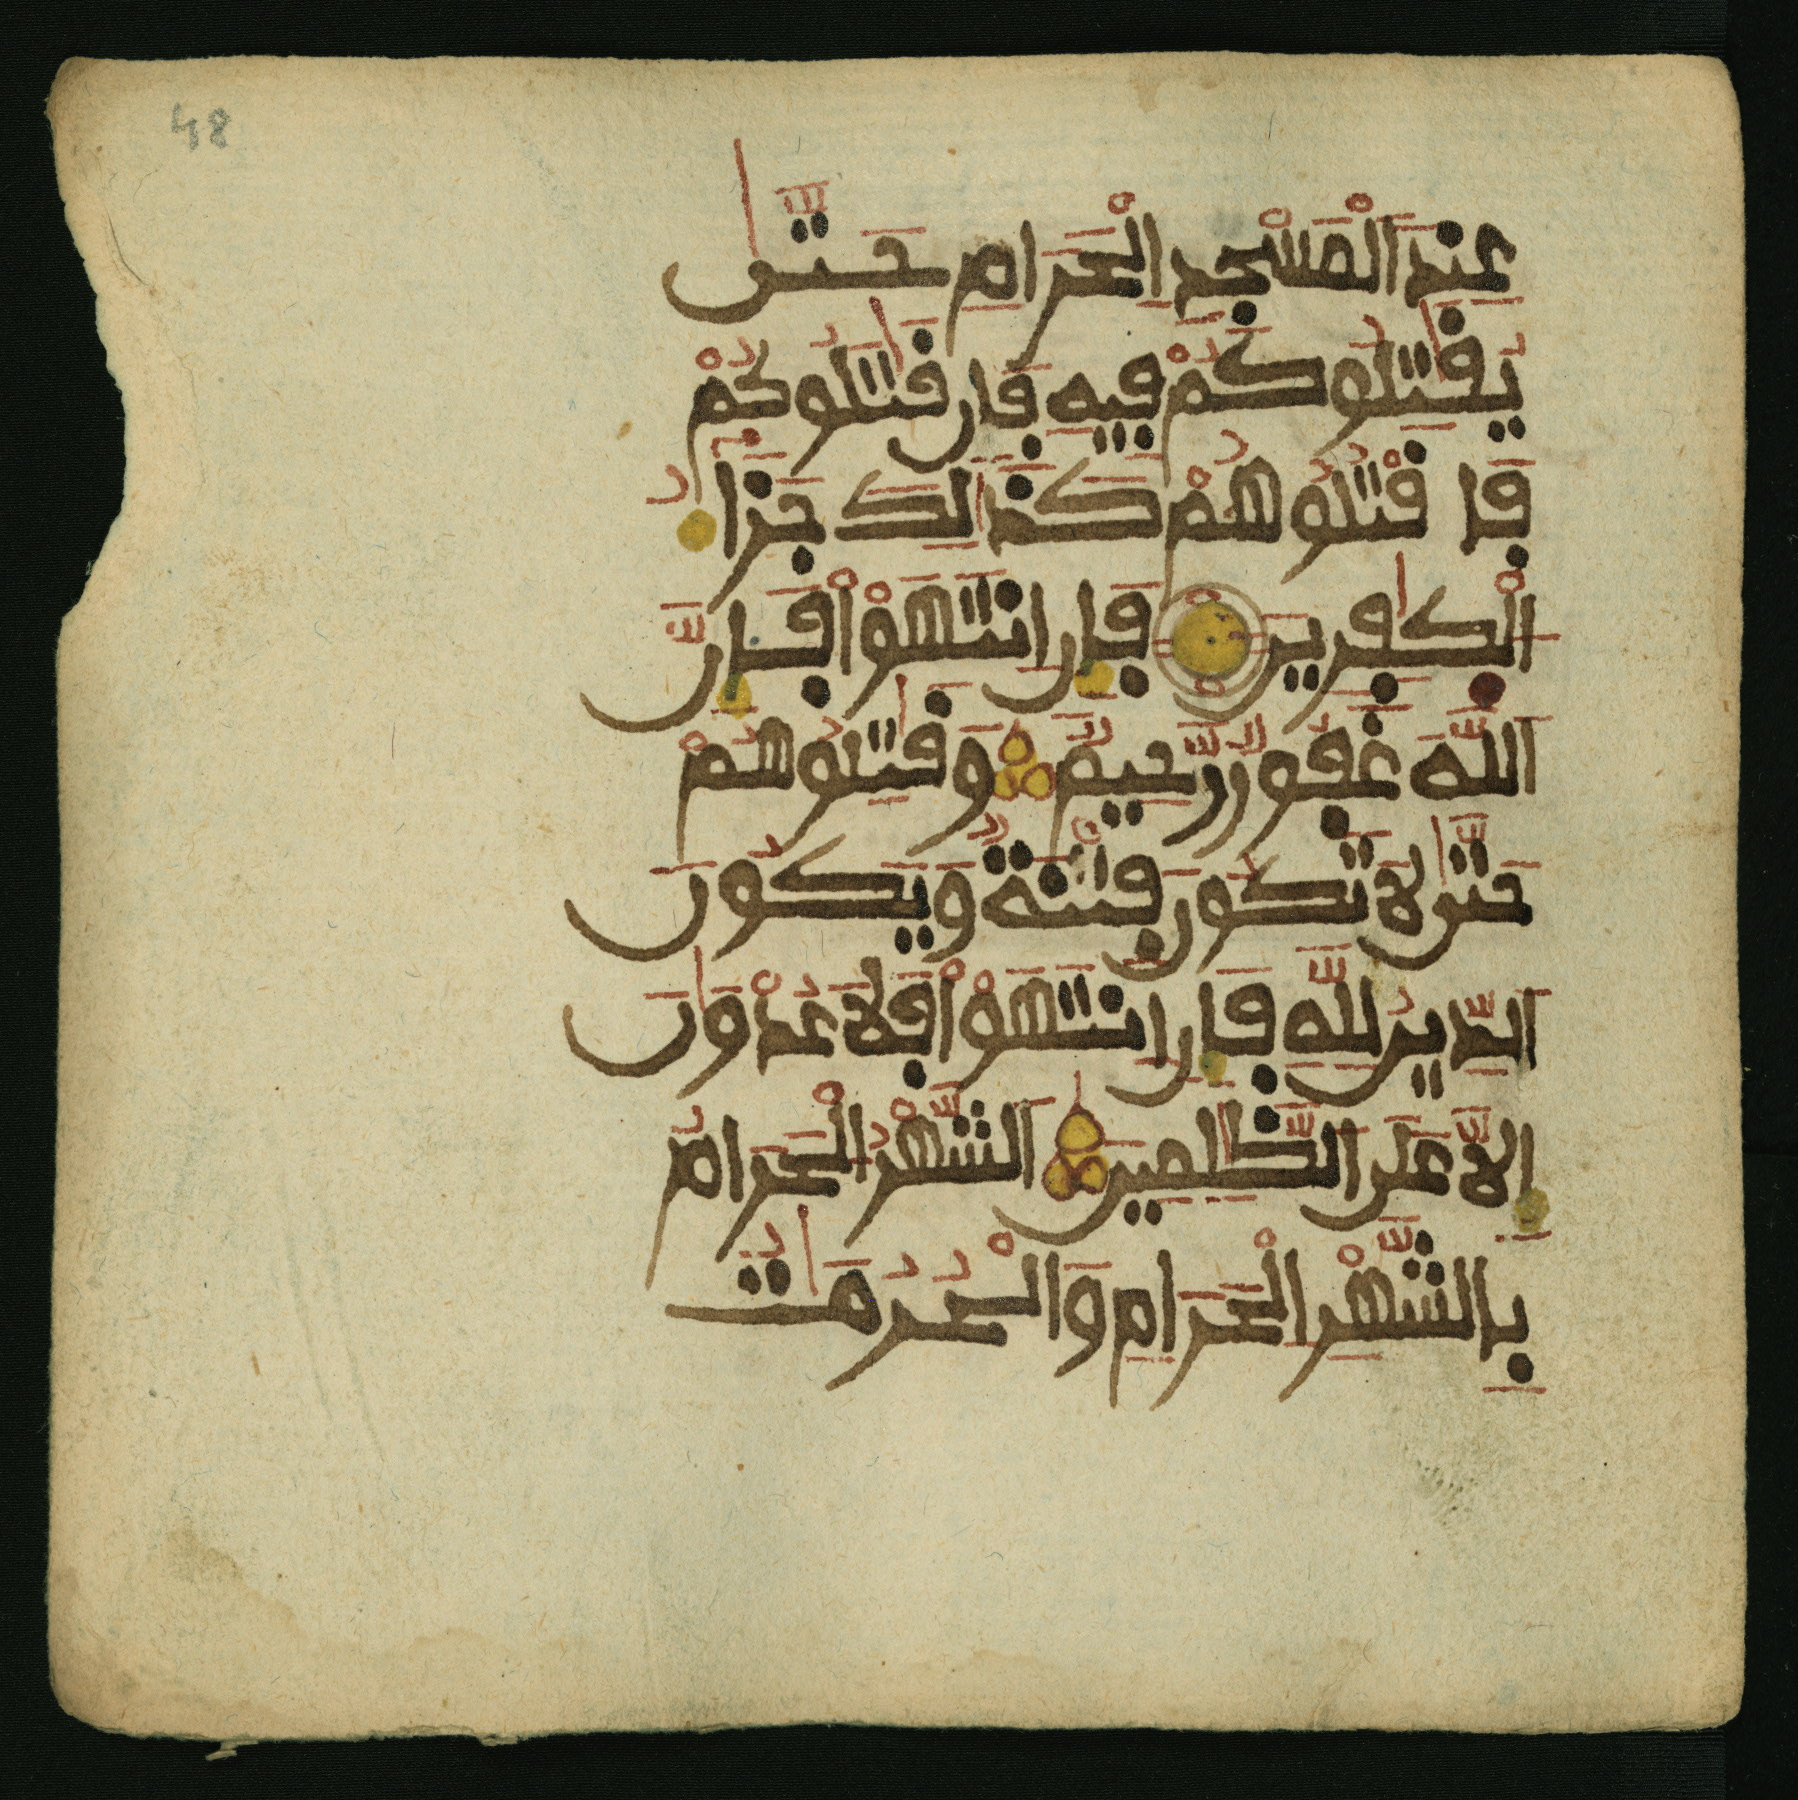 48
عِندَ ٱلْمَسْجِدِ ٱلْحَرَامِ حَتَّىٰ
يُقَٰتِلُوكُمْ فِيهِ فَإِن قَٰتَلُوكُمْ
فَاقْتُلُوهُمْ كَذَٰلِكَ جَزَاءُ
ٱلْكَٰفِرِينَ فَإِنِ ٱنتَهَوْاْ فَإِنَّ
ٱللَّهَ غَفُورٌ رَّحِيمٌ وَقَٰتِلُوهُمْ
حَتَّىٰ لَا تَكُونَ فِتْنَةٌ وَيَكُونَ
ٱلدِّينُ لِلَّهِ فَإِنِ ٱنتَهَوْاْ فَلَا عُدْوَٰنَ
إِلَّا عَلَى ٱلظَّٰلِمِينَ ٱلشَّهْرُ ٱلْحَرَامُ
بِٱلشَّهْرِ ٱلْحَرَامِ وَٱلْحُرُمَٰتُ